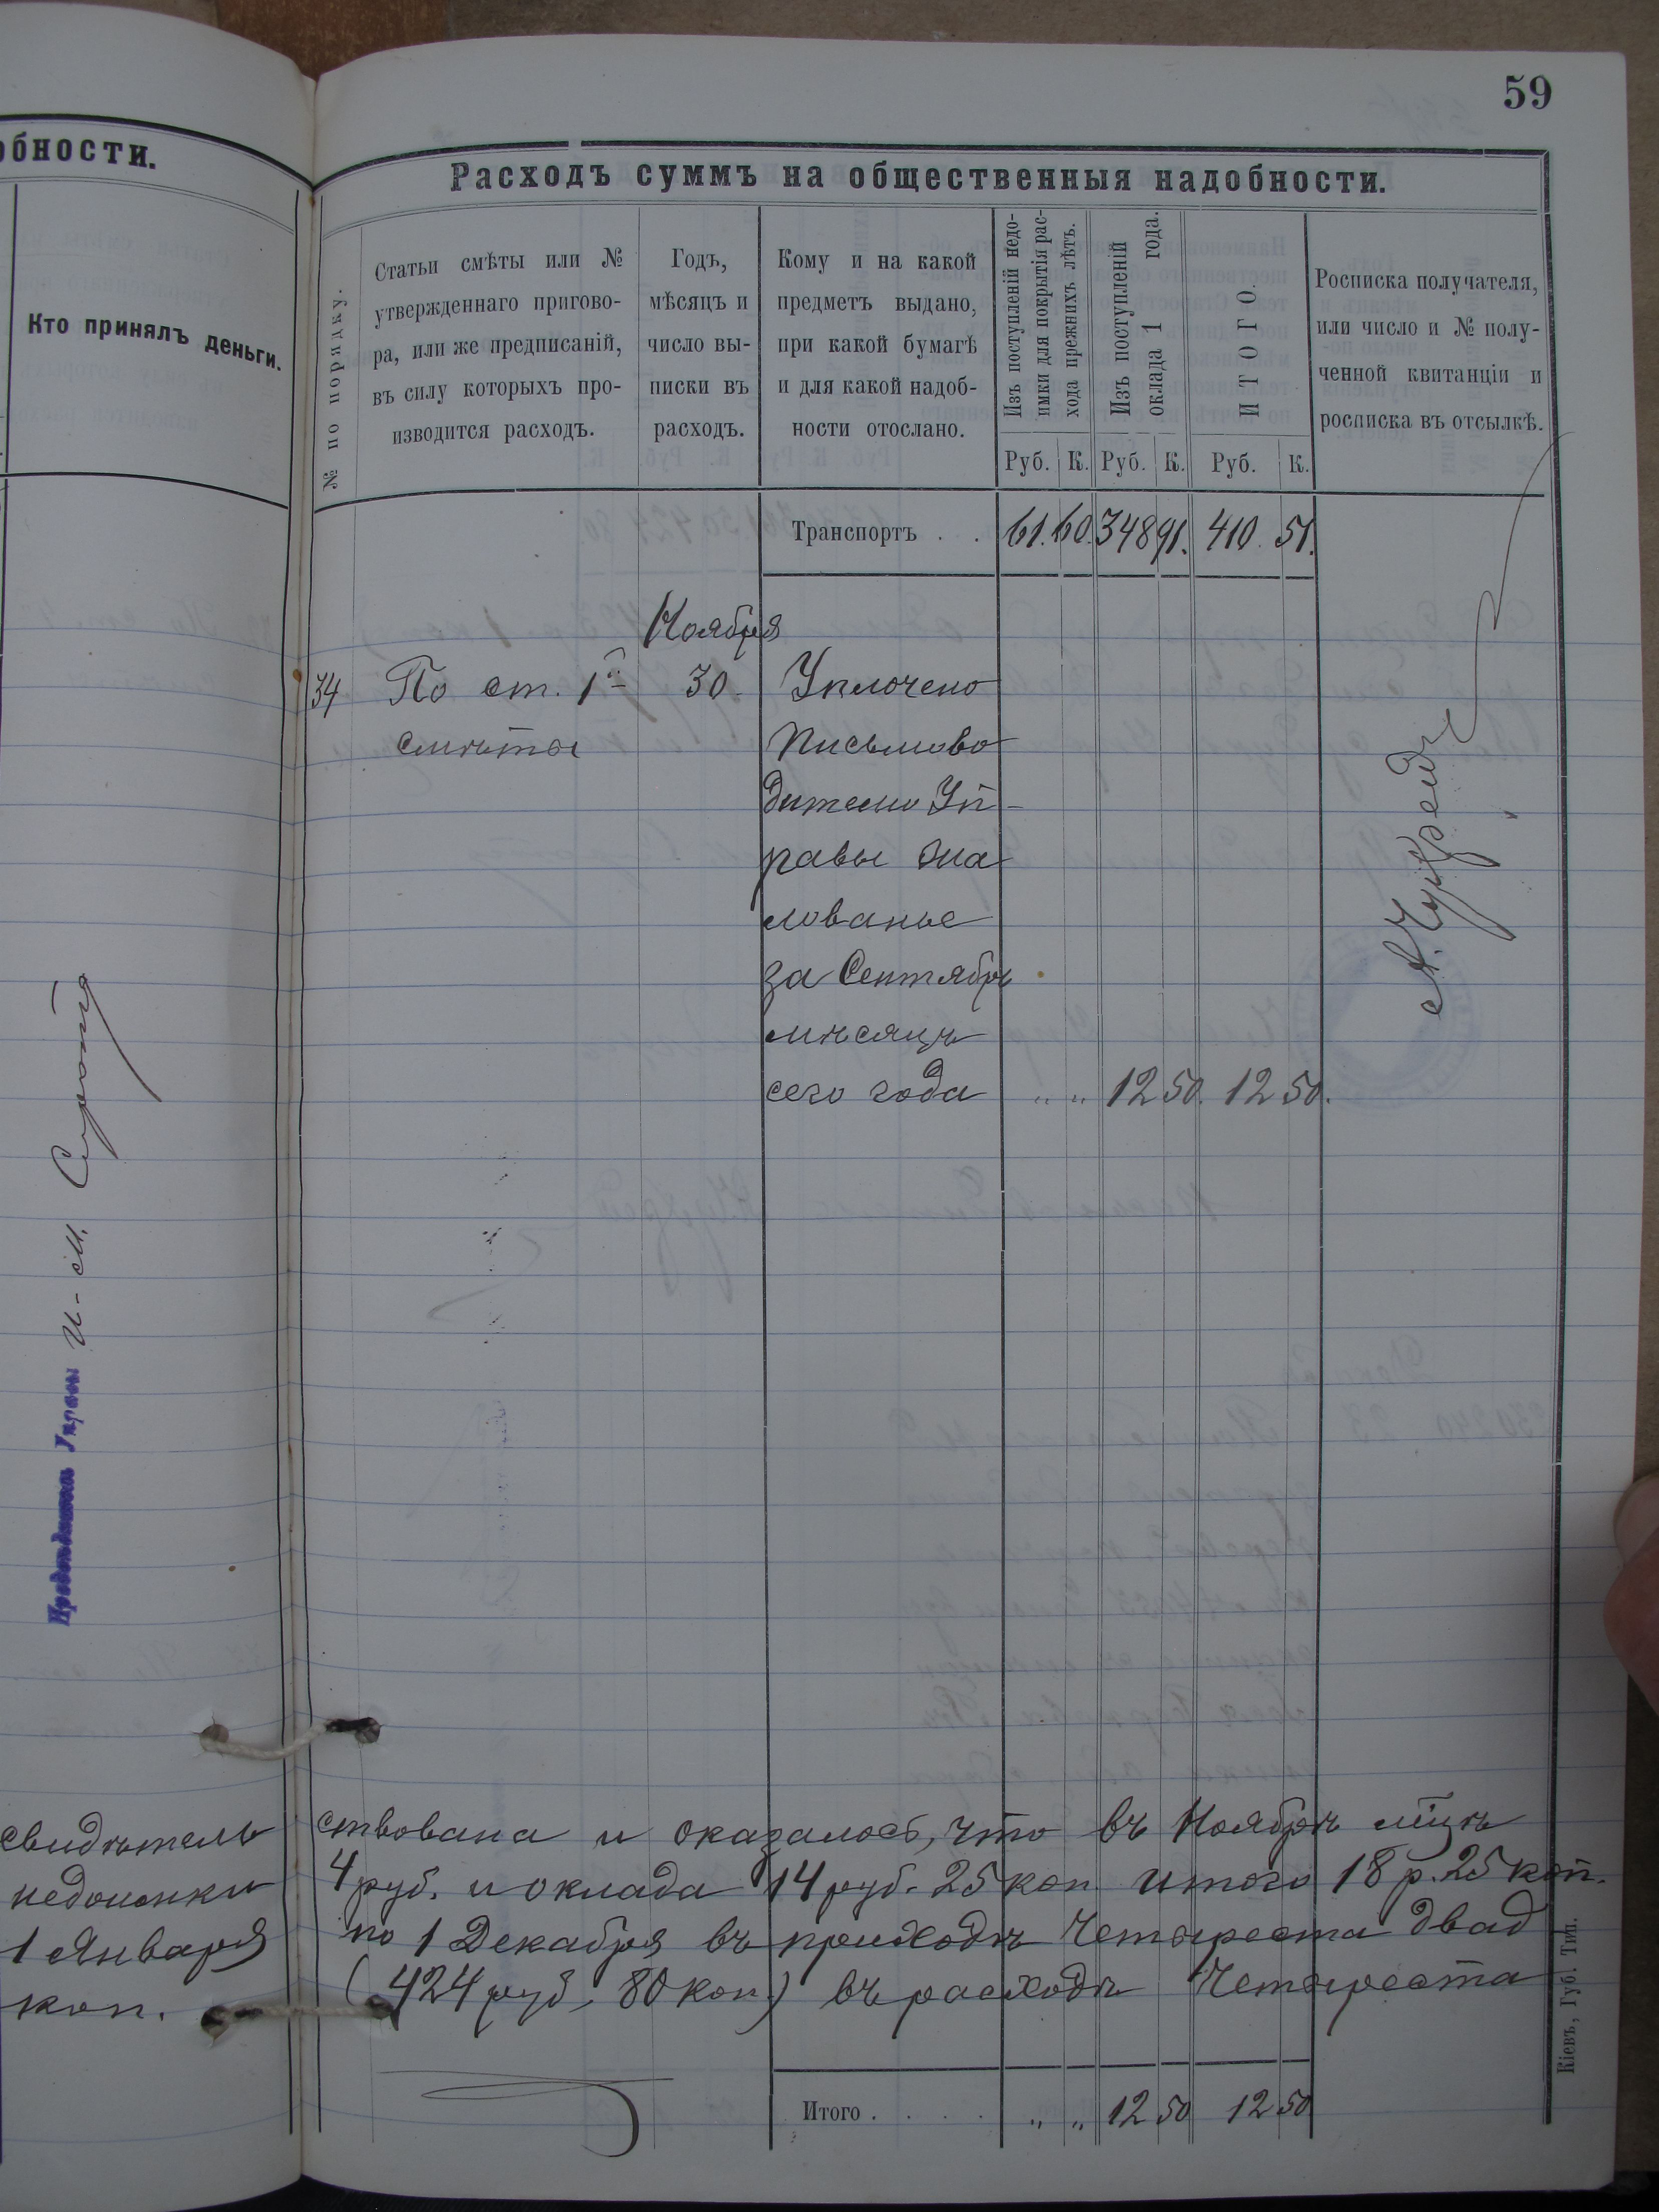 обности.
Кто принялъ деньги.
Предсѣдатель Управы И. М. Сирота
свидѣтель
недоимки
1 Января
коп.
59
Расходъ суммъ на общественныя надобности.
№ по порядку.
Статьи смѣты или №
утвержденнаго пригово-
ра, или же предписаній,
въ силу которыхъ про-
изводится расходъ.
Годъ,
мѣсяцъ и
число вы-
писки въ
расходъ.
Кому и на какой
предметъ выдано,
при какой бумагѣ
и для какой надоб-
ности отослано.
Изъ поступленій недо-
имки для покрытія рас-
хода прежнихъ лѣтъ.
Изъ поступленій
оклада 1 года.
ИТОГО.
Росписка получателя,
или число и № полу-
ченной квитанціи и
росписка въ отсылкѣ.
Руб. К. Руб. К. Руб. К.
Транспортъ . . 61. 60. 348 91. 410. 51.
Ноября
34 По ст. 1й 30. Уплочено
смѣты Письмово
дителю Уп-
равы жа
лованье
за Сентябрь
мѣсяцъ
сего года " " 12 50. 12 50.
ствована и оказалось, что въ Ноябрѣ м҃цѣ
4 руб. и оклада 14 руб. 25 коп. итого 18 р. 25 коп.
по 1 Декабря въ приходѣ Четыреста двад
(424 руб. 80 коп.) въ расходѣ Четыреста
Итого . . . . " " 12 50 12 50
Кіевъ, Губ. Тип.